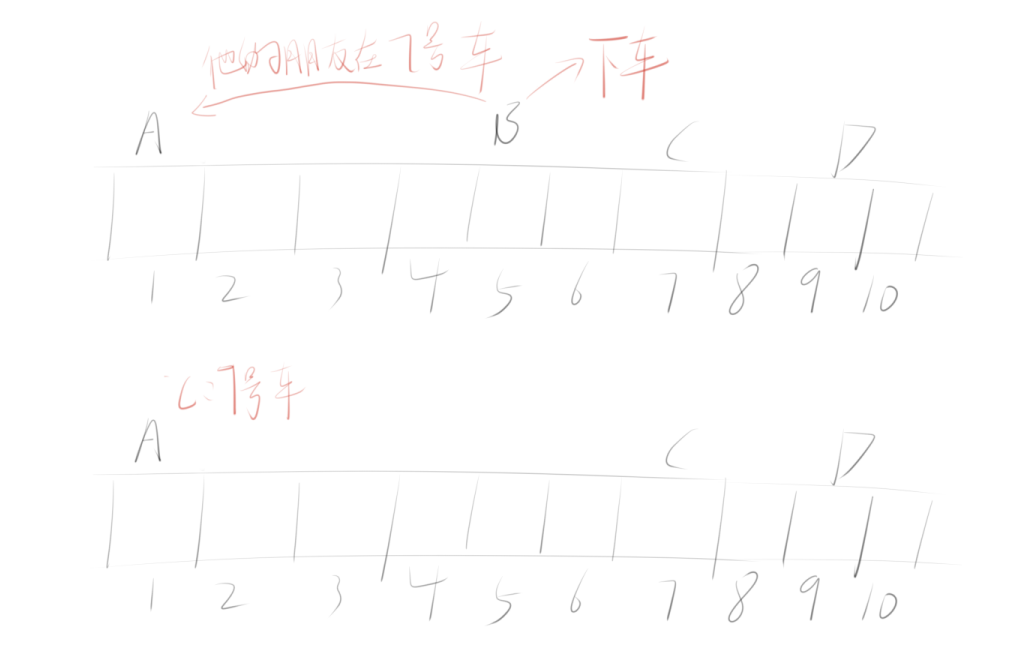 他的朋友在7号车 下车
A B C D
1 2 3 4 5 6 7 8 9 10
C:7号车
A C D
1 2 3 4 5 6 7 8 9 10